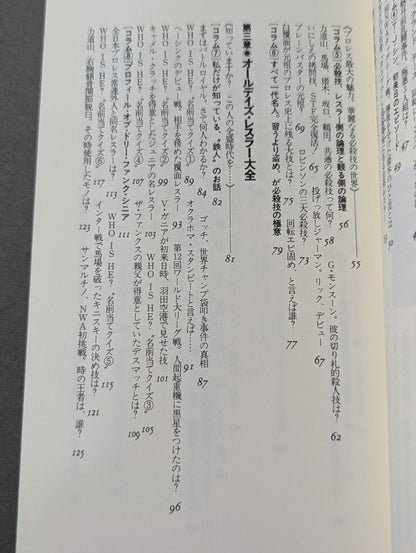 〈プロレス最大の魅力、華麗なる必殺技の世界〉 55
【コラム⑤】必殺技、レスラー側の論理と観る側の論理 56
力道山、馬場、猪木、坂口、鶴田、共通の必殺技って何?
G・モンスーン。彼の切り札的殺人技は? 62
いにしえの拷問技、STF完全復活! 65
投げっ放しジャーマン。リック、デビュー 67
ブレーンバスターの元祖? 71
ロビンソンの三大必殺技? 73
白覆面が元祖のプロレス史上に残る大技とは? 75
回転エビ固め、と言えば誰? 77
【コラム⑥】すべて一代名人。習うより盗め、が必殺技の極意 79
第三章●オールデイズ・レスラー大全
〈知っていますか? この人の全盛時代を!〉 81
【コラム⑦】私だけが知っている、“鉄人”のお話 82
まずはバトルロイヤル。さて何人わかるか? 84
ゴッチ、世界チャンプ袋叩き事件の真相 87
WHO IS HE? “名前当てクイズ①” 89
オクラホマ・スタンピートと言えば…… 91
ヘーシンクのデビュー戦。相手を務めた覆面レスラー 93
第12回ワールド大リーグ戦。人間起重機に黒星をつけたのは? 96
WHO IS HE? “名前当てクイズ②” 99
V・ガニアが初来日時、羽田空港で見せた技 102
キャメルクラッチを得意としたジュニアの名レスラー 103
WHO IS HE? “名前当てクイズ③” 105
WHO IS HE? “名前当てクイズ④” 107
ファンクスの親父が得意としていたデスマッチとは? 109
【コラム⑧】プロフィール・オブ・ドリー・ファンク・シニア 111
全日本プロレス常連外人と同名レスラーは? 113
WHO IS HE? “名前当てクイズ⑤” 115
WHO IS HE? “名前当てクイズ⑥” 117
インター戦で馬場を破ったキニスキーの決め技は? 121
力道山、右腕鎖骨関節脱臼。その時使用したモノは? 123
サンマルチノ、NWA初挑戦。時の王者は、誰? 125